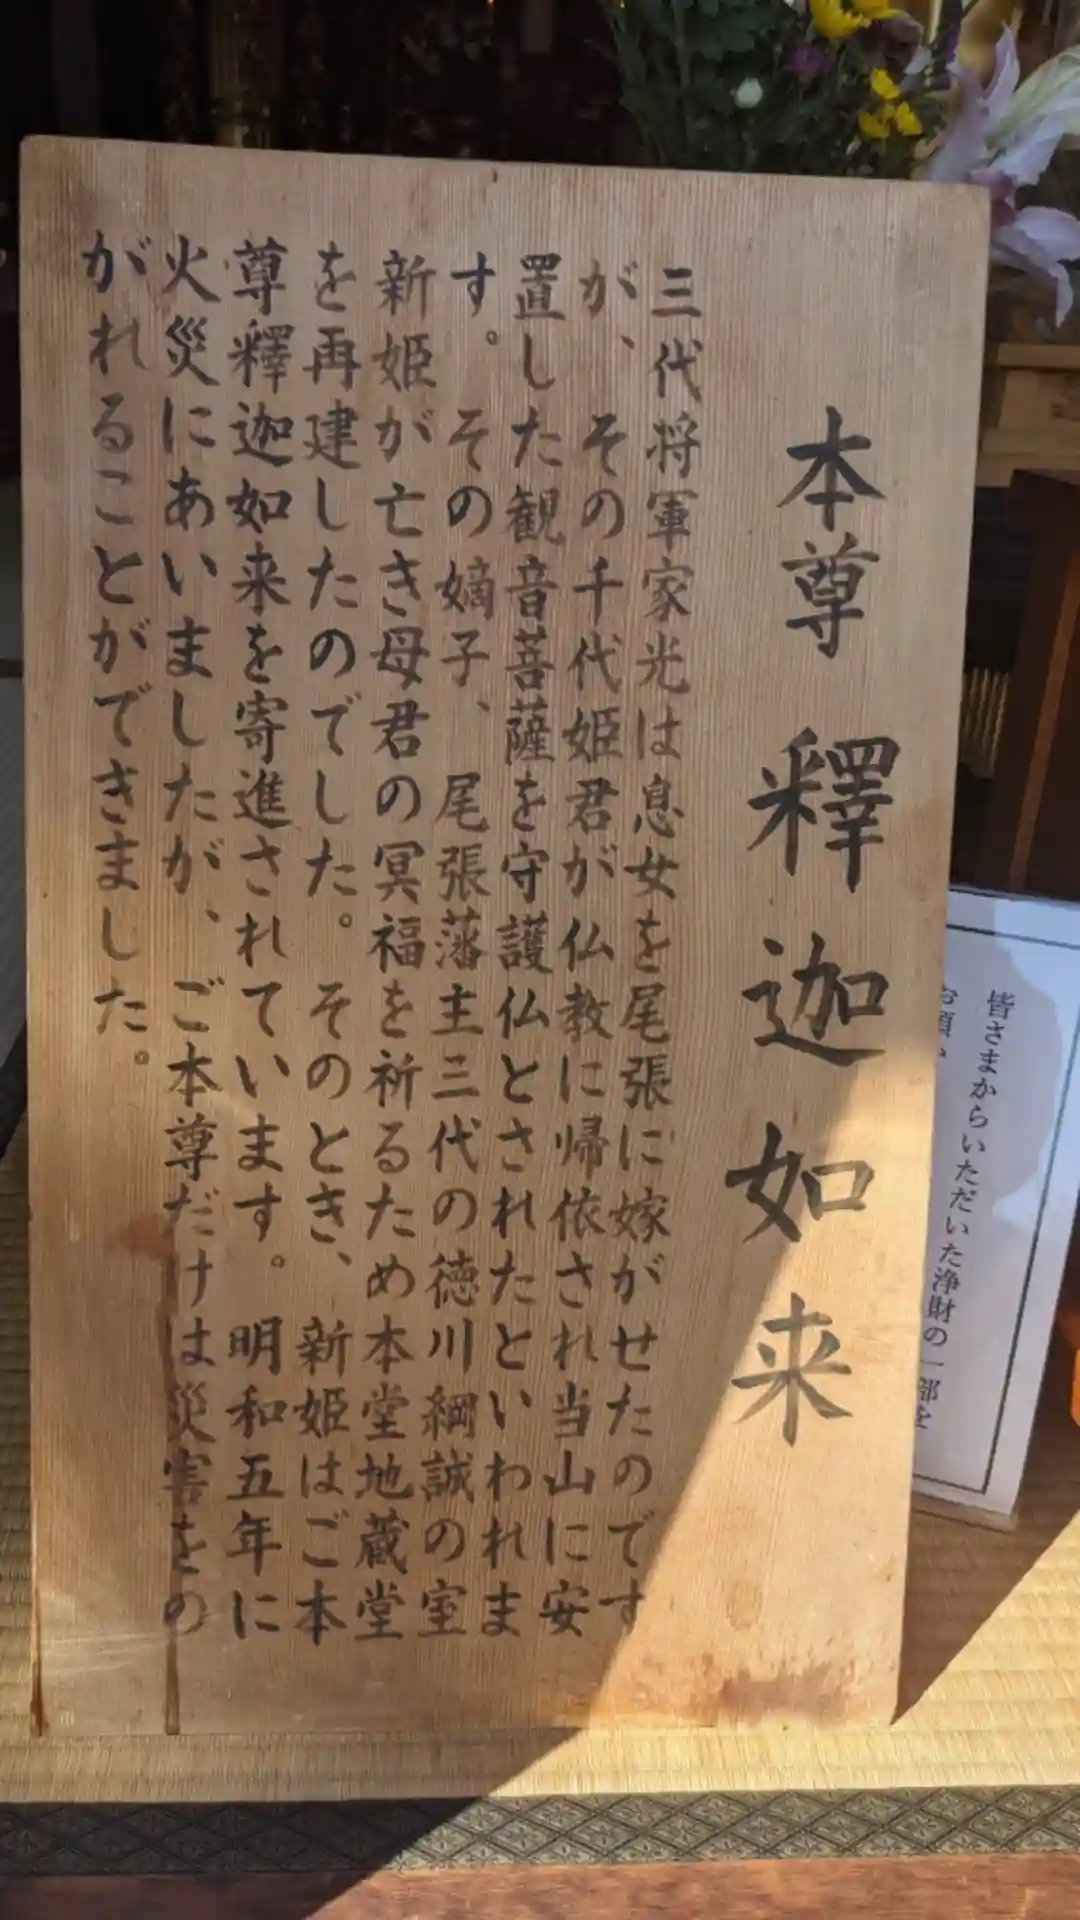 本尊 釋迦如来
三代将軍家光は息女を尾張に嫁がせたのです
が、その千代姫君が仏教に帰依され当山に安
置した観音菩薩を守護仏とされたといわれま
す。その嫡子、尾張藩主三代の徳川綱誠の室
新姫が亡き母君の冥福を祈るため本堂地蔵堂
を再建したのでした。そのとき、新姫はご本
尊釋迦如来を寄進されています。明和五年に
火災にあいましたが、ご本尊だけは災害をの
がれることがでできました。
皆さまからいただいた浄財の一部を